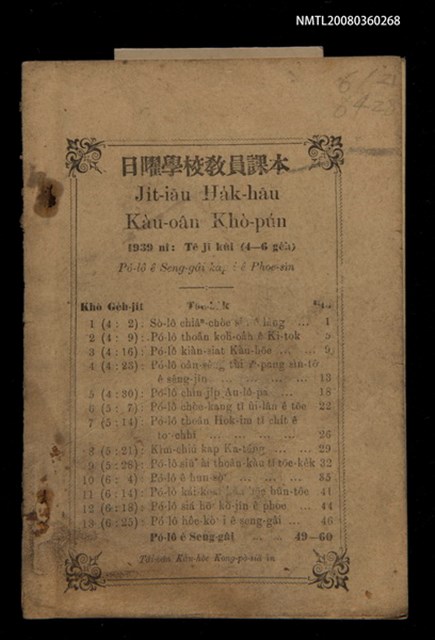 NMTL20080360268
日曜學校教員課本
Ji̍t-iāu Ha̍k-hāu
Kàu-oân Khò-pún
1939 nî: Tē jī kùi (4–6 ge̍h)
Pó-lô ê Seng-gâi kap i ê Phoe-sìn
Khò Ge̍h-ji̍t
1 (4 : 2) : Só-lô chiâⁿ-chòe ... 1
2 (4 : 9) : Pó-lô thoân koh-oa̍h ê Ki-tok
3 (4 : 16) : Pó-lô kiàn-siat Kàu-hōe ... 9
4 (4 : 23) : Pó-lô oān-sêng ê pang sìn-tô
ê sêng-jīn ... 13
5 (4 : 30) : Pó-lô chìn ji̍p Au-lô-pa ... 18
6 (5 : 7) : Pó-lô chòe-kang tī ūi-lân ê tōe 22
7 (5 : 14) : Pó-lô thoân Hok-im tī chi̍t ê
to͘-chhī ... 26
8 (5 : 21) : Kim-chiú kap Ka-têng ... 29
9 (5 : 28) : Pó-lô thoân-kàu tī tōe-kek 32
10 (6 : 4) : Pó-lô ê hun-sò͘ ... 35
11 (6 : 11) : Pó-lô bûn-tôe 41
12 (6 : 18) : Pó-lô siá hō͘ kò-jîn ê phoe ... 44
13 (6 : 25) : Pó-lô hôe-kò͘ i ê seng-gâi ... 46
Pó-lô ê Seng-gâi ... 49–60